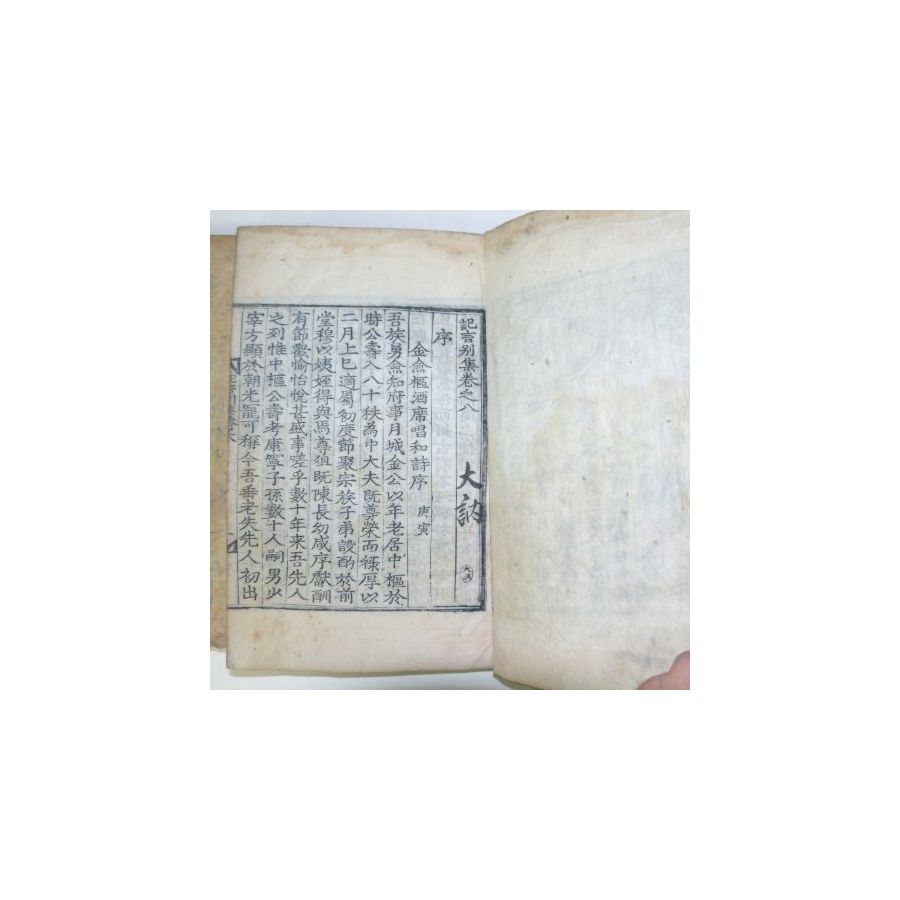 記言別集卷之八
大訥
序
金僉樞酒席唱和詩序 庚寅
吾族舅僉知府事月城金公以年老居中樞於
時公壽八十秩為中大夫旣尊榮而祿厚以
二月上巳適屬初度節聚宗族子弟設酌於前
堂穆以姨姪得與焉尊狙旣陳長幼咸序獻酬
有節歡愉怡悅甚盛事嗟乎數十年來吾先人
之列惟中樞公壽考康寧子孫數十人嗣男少
宰方顯於朝光寵可稱今吾垂老失先人初出